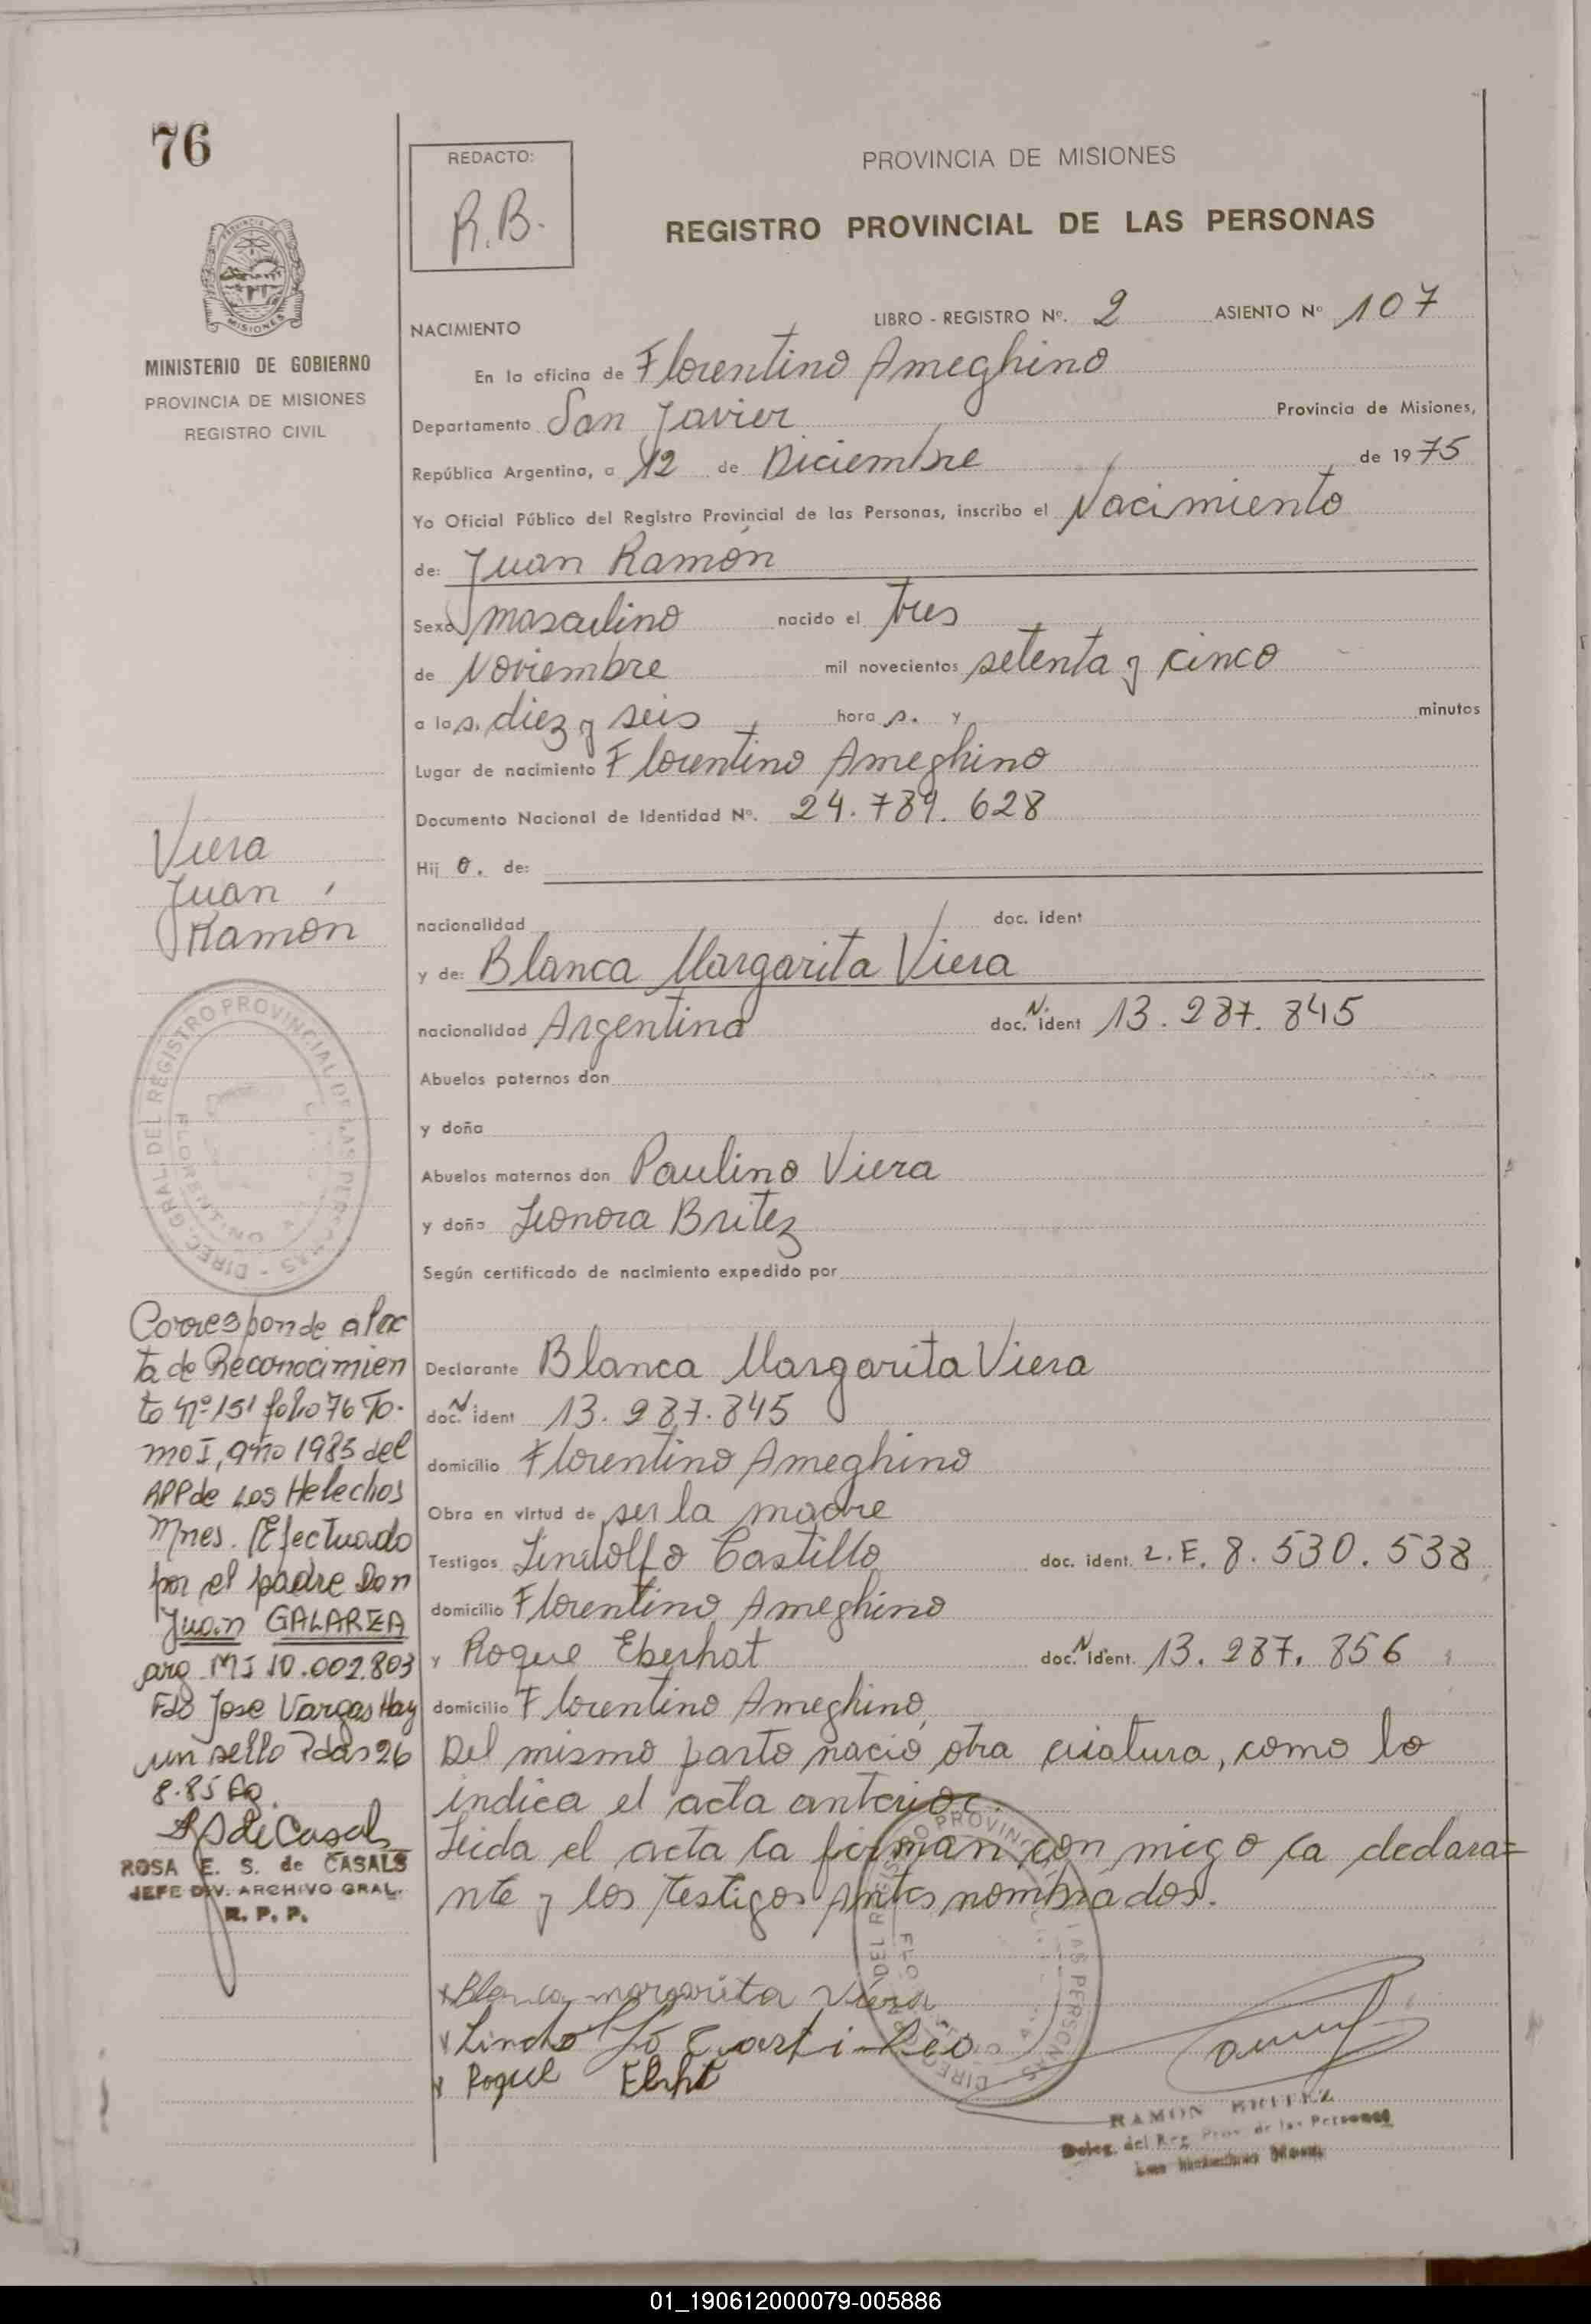 76
REDACTO:
R.B.
PROVINCIA DE MISIONES
REGISTRO PROVINCIAL DE LAS PERSONAS
MISIONES
MINISTERIO DE GOBIERNO
PROVINCIA DE MISIONES
REGISTRO CIVIL
LIBRO - REGISTRO Nº. 2 ASIENTO Nº 107
NACIMIENTO
En la oficina de Florentino Ameghino
Departamento San Javier Provincia de Misiones,
República Argentina, a 12 de Diciembre de 1975
Yo Oficial Público del Registro Provincial de las Personas, inscribo el Nacimiento
de: Juan Ramón
Sexo masculino nacido el tres
de Noviembre mil novecientos setenta y cinco
a las. diez y seis hora s. y minutos
Lugar de nacimiento Florentino Ameghino
Documento Nacional de Identidad Nº. 24.789.628
Hij o. de:
nacionalidad doc. ident
y de: Blanca Margarita Viera
nacionalidad Argentina doc. N. ident 13.287.845
Abuelos paternos don
y doña
Abuelos maternos don Paulino Viera
y doña Leonora Britez
Según certificado de nacimiento expedido por
Declarante Blanca Margarita Viera
doc. N ident 13.287.845
domicilio Florentino Ameghino
Obra en virtud de ser la madre
Testigos Lindolfo Castillo doc. ident. L.E. 8.530.538
domicilio Florentino Ameghino
y Roque Eberhat doc. N ident. 13.287.856
domicilio Florentino Ameghino
Del mismo parto nació otra criatura, como lo
indica el acta anterior.
Leida el acta la firman con migo la declara=
nte y los testigos antes nombrados.
Viera
Juan
Ramón
DIREC. GRAL. DEL REGISTRO PROVINCIAL DE LAS PERSONAS
FLORENTINO
Corresponde al ac
ta de Reconocimien
to Nº 151 folio 76 To-
mo I, año 1985 del
RPP de Los Helechos
Mnes. Efectuado
por el padre Don
Juan GALARZA
arg MI 10.002.803
Fdo Jose Vargas Hay
un sello Pdas 26
8.85
ROSA E. S. de CASALS
JEFE DIV. ARCHIVO GRAL.
R. P. P.
Blanca margarita Viera
Roque
RAMON BRITEZ
Deleg. del Reg. Prov. de las Personas
01_190612000079-005886